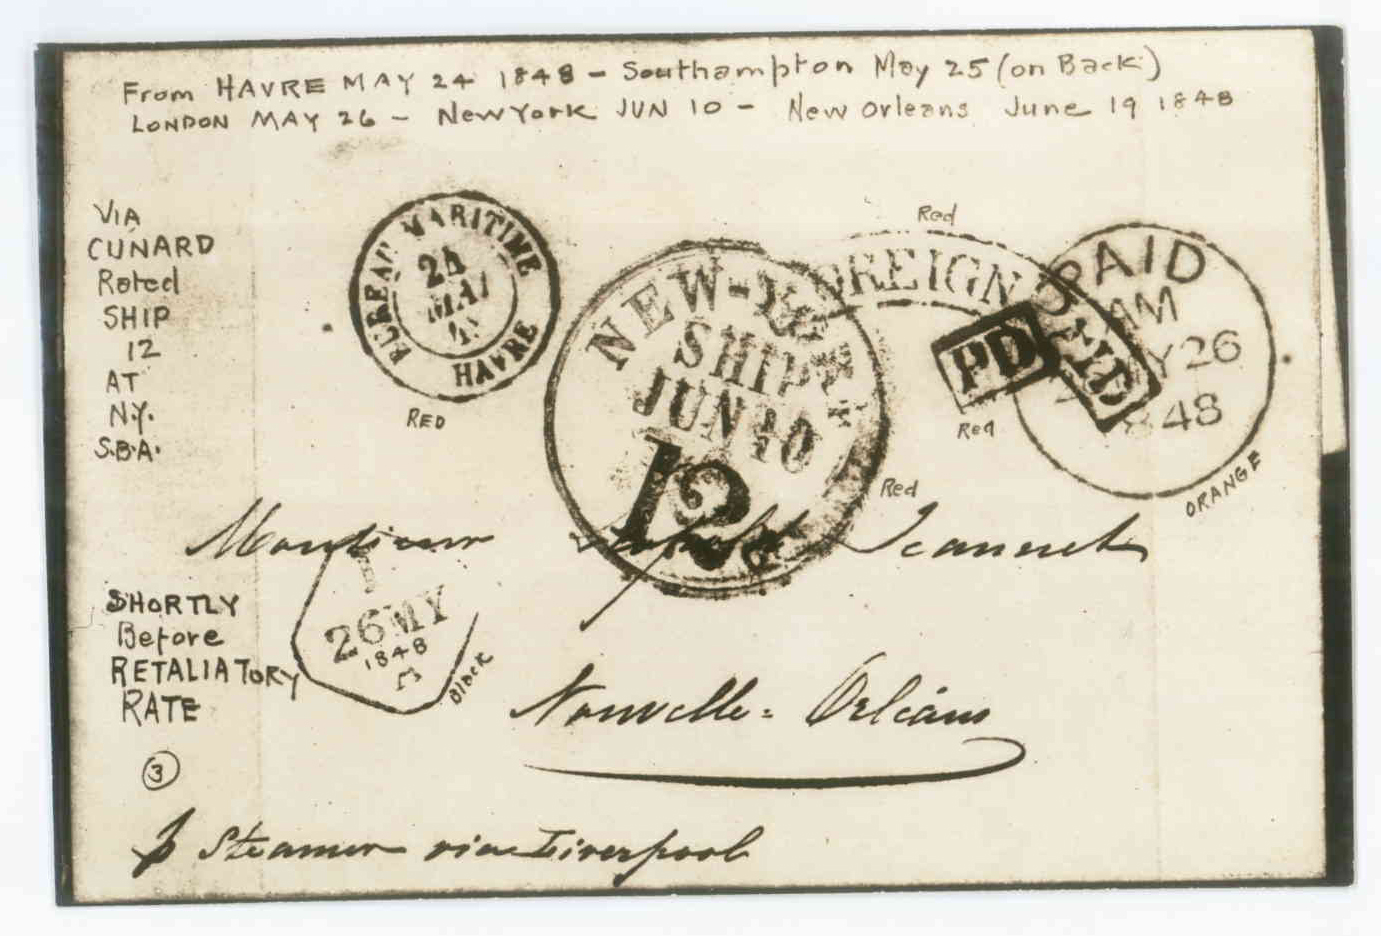 From HAVRE MAY 24 1848 - Southampton May 25 (on Back)
LONDON MAY 26 - New York JUN 10 - New Orleans June 19 1848
VIA
CUNARD
Rated
SHIP
12
AT
N.Y.
S.B.A.
BUREAU MARITIME
24
MAI
48
HAVRE
RED
NEW-YORK
SHIP
JUN 10
12
Red
Red
FOREIGN
PAID
PD
Red
PAID
AM
MY 26
1848
ORANGE
Monsieur Jeannet
26 MY
1848
Black
SHORTLY
Before
RETALIATORY
RATE
3
Nouvelle-Orléans
p Steamer via Liverpool